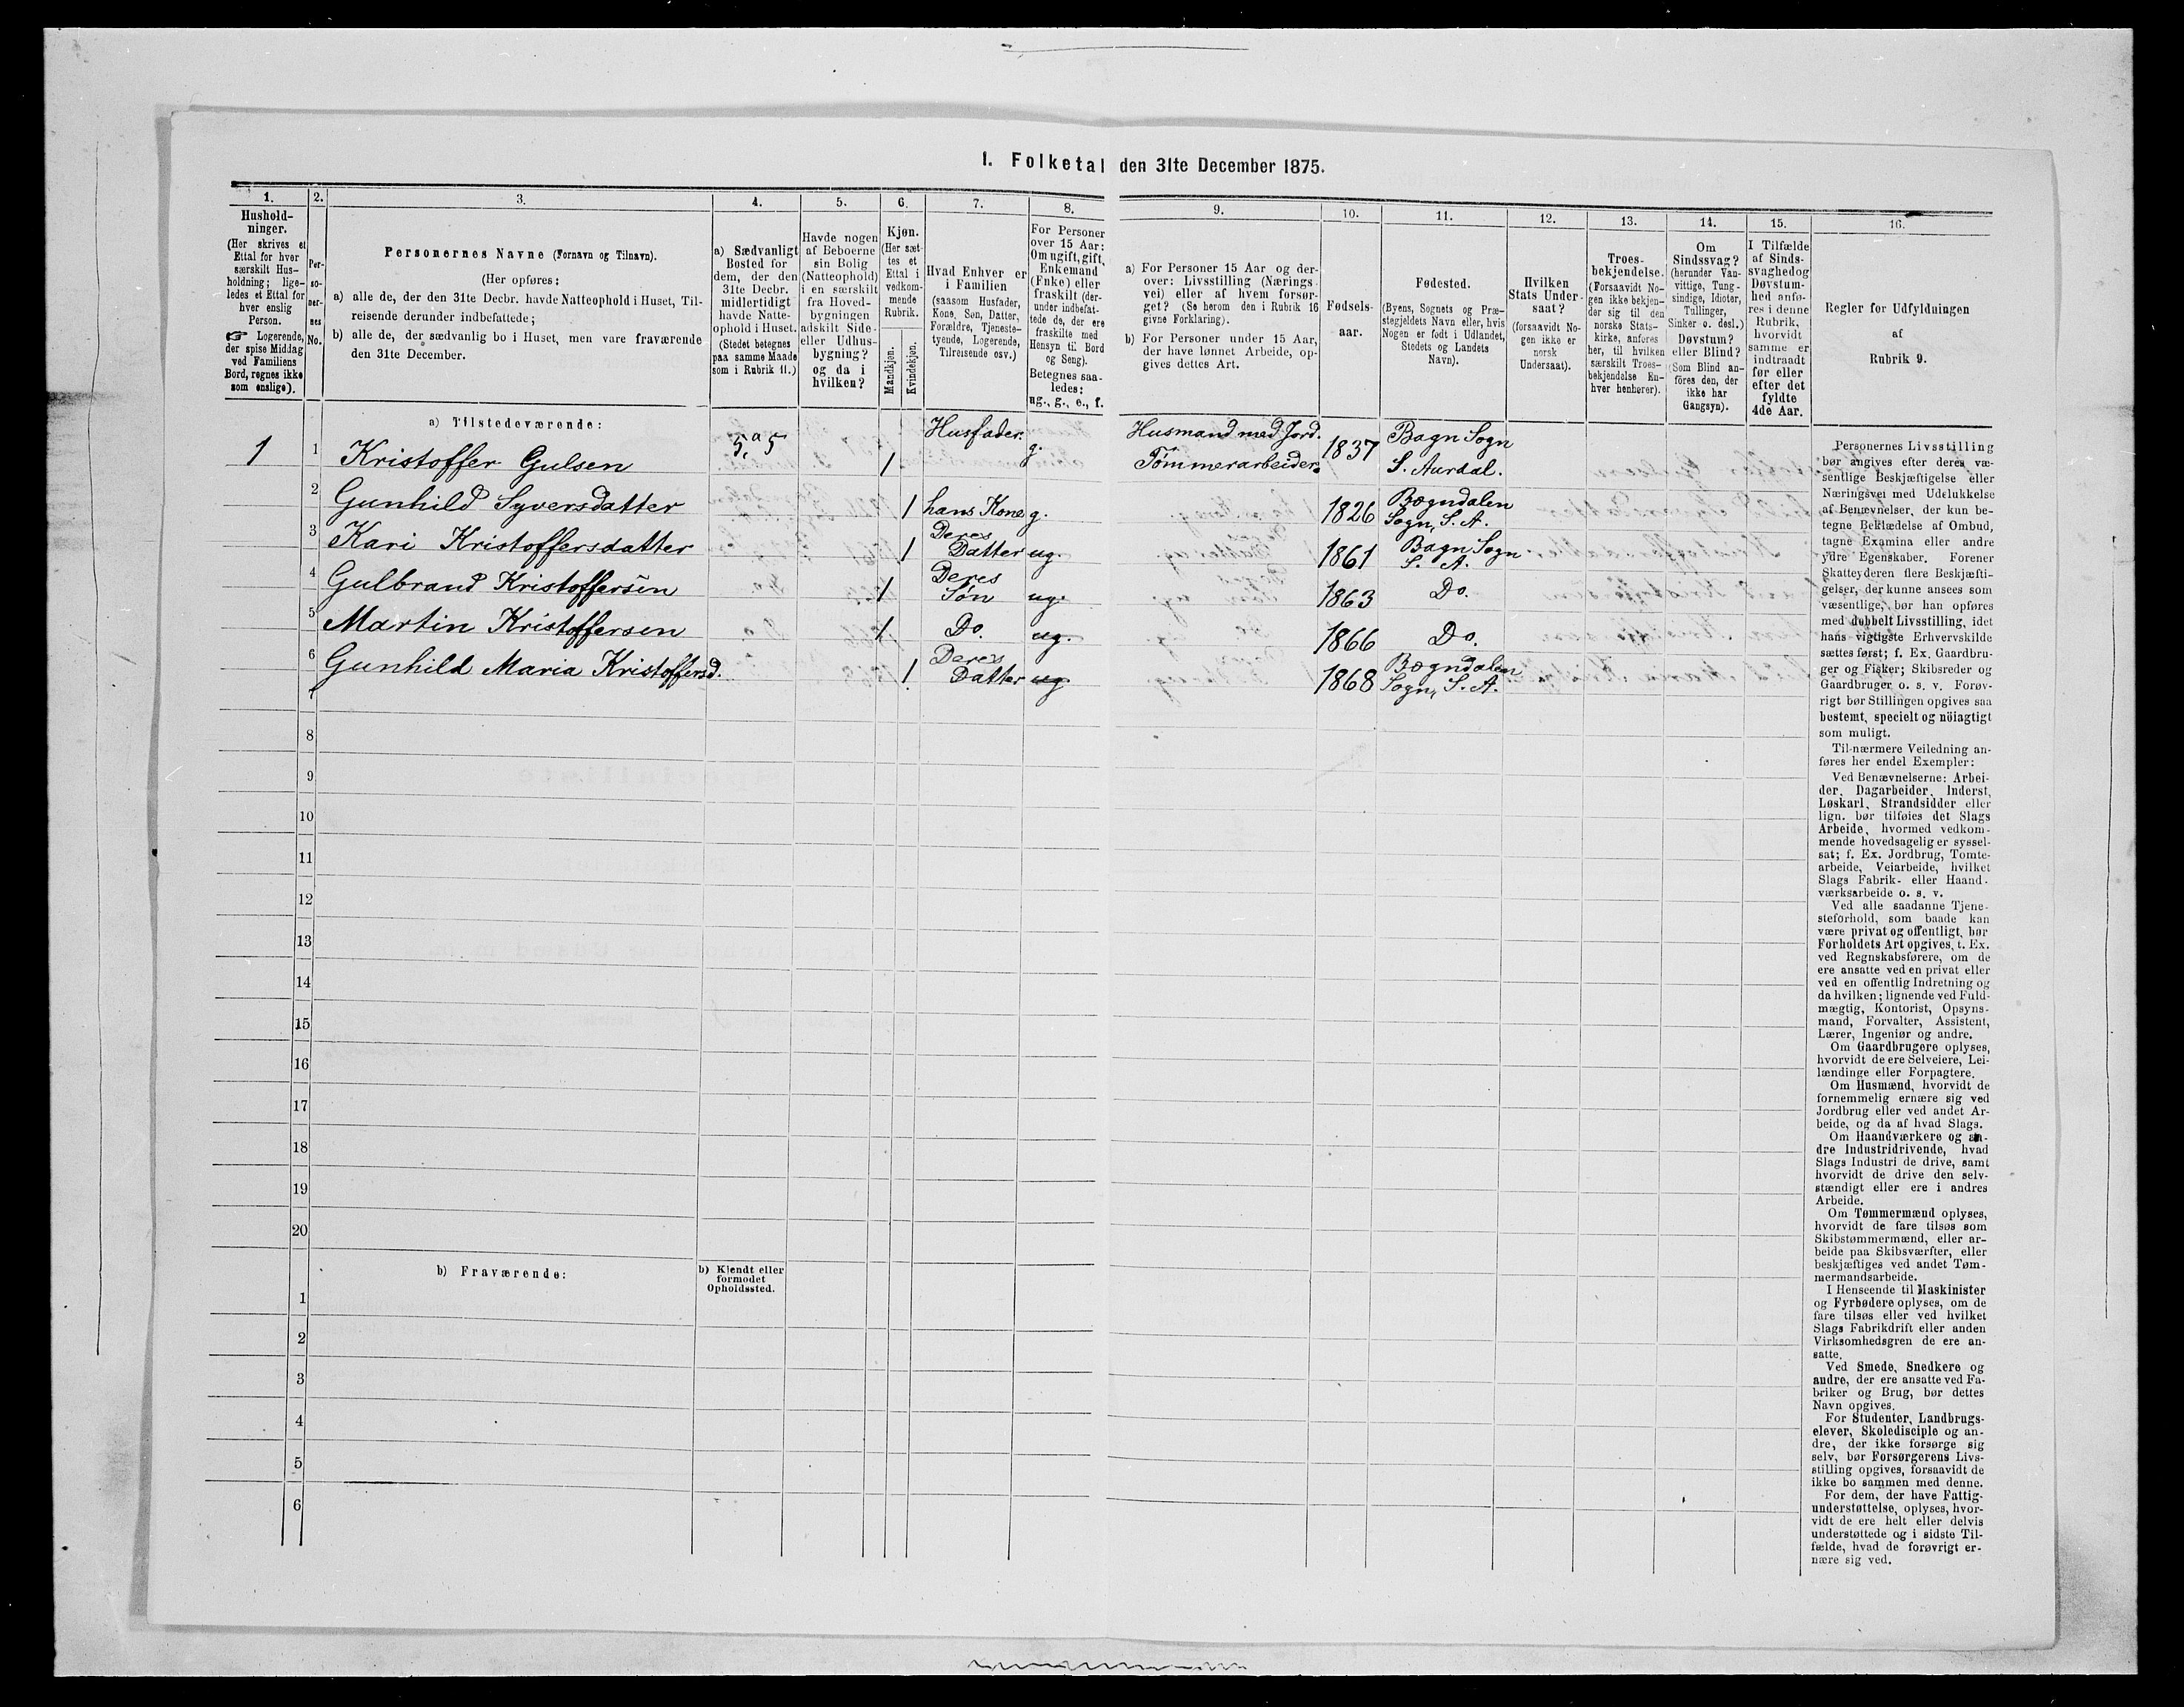 1. Folketal den 31te December 1875.
1. 2. 3. 4. 5. 6. 7. 8. 9. 10. 11. 12. 13. 14. 15. 16.
Hushold-
ninger.
(Her skrives et
Ettal for hver
særskilt Hus-
holdning; lige-
ledes et Ettal for
hver enslig
Person.
☞ Logerende,
der spise Middag
ved Familiens
Bord, regnes ikke
som enslige).
Per-
so-
ner-
nes
No.
Personernes Navne (Fornavn og Tilnavn).
(Her opføres:
a) alle de, der den 31te Decbr. havde Natteophold i Huset, Til-
reisende derunder indbefattede;
b) alle de, der sædvanlig bo i Huset, men vare fraværende
den 31te December.
a) Sædvanligt
Bosted for
dem, der den
31te Decbr.
midlertidigt
havde Natte-
ophold i Huset.
(Stedet betegnes
paa samme Maade
som i Rubrik 11.)
Havde nogen
af Beboerne
sin Bolig
(Natteophold)
i en særskilt
fra Hoved-
bygningen
adskilt Side-
eller Udhus-
bygning?
og da i
hvilken?
Kjøn.
(Her sæt-
tes et
Ettal i
vedkom-
mende
Rubrik.
Mandkjøn.
Kvindekjøn.
Hvad Enhver er
i Familien
(saasom Husfader,
Kone, Søn, Datter,
Forældre, Tjeneste-
tyende, Logerende,
Tilreisende osv.)
For Personer
over 15 Aar:
Om ugift, gift,
Enkemand
(Enke) eller
fraskilt (der-
under indbefat-
tede de, der ere
fraskilte med
Hensyn til Bord
og Seng).
Betegnes saa-
ledes:
ug., g., e., f.
a) For Personer 15 Aar og der-
over: Livsstilling (Nærings-
vei) eller af hvem forsør-
get? (Se herom den i Rubrik 16
givne Forklaring).
b) For Personer under 15 Aar,
der have lønnet Arbeide, op-
gives dettes Art.
Fødsels-
aar.
Fødested.
(Byens, Sognets og Præ-
stegjeldets Navn eller, hvis
Nogen er født i Udlandet,
Stedets og Landets
Navn).
Hvilken
Stats Under-
saat?
(forsaavidt No-
gen ikke er
norsk
Undersaat).
Troes-
bekjendelse.
(Forsaavidt No-
gen ikke bekjen-
der sig til den
norske Stats-
kirke, anføres
her, til hvilken
særskilt Troes-
bekjendelse En-
hver henhører).
Om
Sindssvag?
(herunder Van-
vittige, Tung-
sindige, Idioter,
Tullinger,
Sinker o. desl.)
Døvstum?
eller Blind?
(Som Blind an-
føres den, der
ikke har
Gangsyn).
I Tilfælde
af Sinds-
svaghed og
Døvstum-
hed anfø-
res i denne
Rubrik,
hvorvidt
samme er
indtraadt
før eller
efter det
fyldte
4de Aar.
Regler for Udfyldningen
af
Rubrik 9.
a) Tilstedeværende:
1 1 Kristoffer Gulsen 5,a 5 1 Husfader. g. Husmand med Jord. Tømmerarbeider. 1837 Bagn Sogn S. Aurdal.
2 Gunhild Syversdatter 1 hans Kone g. 1826 Bægndalen Sogn, S. A.
3 Kari Kristoffersdatter 1 Deres Datter ug. 1861 Bagn Sogn S. A.
4 Gulbrand Kristoffersen 1 Deres Søn ug. 1863 Do.
5 Martin Kristoffersen 1 Do. ug. 1866 Do.
6 Gunhild Maria Kristoffersd. 1 Deres Datter ug 1868 Bægndalen Sogn, S. A.
7
8
9
10
11
12
13
14
15
16
17
18
19
20
b) Fraværende:
b) Kjendt eller
formodet
Opholdssted.
1
2
3
4
5
6
Personernes Livsstilling
bør angives efter deres væ-
sentlige Beskjæftigelse eller
Næringsvei med Udelukkelse
af Benævnelser, der kun be-
tegne Beklædelse af Ombud,
tagne Examina eller andre
ydre Egenskaber. Forener
Skatteyderen flere Beskjæfti-
gelser, der kunne ansees som
væsentlige, bør han opføres
med dobbelt Livsstilling, idet
hans vigtigste Erhvervskilde
sættes først; f. Ex. Gaardbru-
ger og Fisker; Skibsreder og
Gaardbruger o. s. v. Forøv-
rigt bør Stillingen opgives saa
bestemt, specielt og nöiagtigt
som muligt.
Til nærmere Veiledning an-
føres her endel Exempler:
Ved Benævnelserne: Arbei-
der, Dagarbeider, Inderst,
Løskarl, Strandsidder eller
lign. bør tilføies det Slags
Arbeide, hvormed vedkom-
mende hovedsagelig er syssel-
sat; f. Ex. Jordbrug, Tomte-
arbeide, Veiarbeide, hvilket
Slags Fabrik- eller Haand-
værksarbeide o. s. v.
Ved alle saadanne Tjene-
steforhold, som baade kan
være privat og offentligt, bør
Forholdets Art opgives, t. Ex.
ved Regnskabsførere, om de
ere ansatte ved en privat eller
ved en offentlig Indretning og
da hvilken; lignende ved Fuld-
mægtig, Kontorist, Opsyns-
mand, Forvalter, Assistent,
Lærer, Ingeniør og andre.
Om Gaardbrugere oplyses,
hvorvidt de ere Selveiere, Lei-
lændinge eller Forpagtere.
Om Husmænd, hvorvidt de
fornemmelig ernære sig ved
Jordbrug eller ved andet Ar-
beide, og da af hvad Slags.
Om Haandværkere og an-
dre Industridrivende, hvad
Slags Industri de drive, samt
hvorvidt de drive den selv-
stændigt eller ere i andres
Arbeide.
Om Tømmermænd oplyses,
hvorvidt de fare tilsøs som
Skibstømmermænd, eller ar-
beide paa Skibsværfter, eller
beskjæftiges ved andet Tøm-
mermandsarbeide.
I Henseende til Maskinister
og Fyrbødere oplyses, om de
fare tilsøs eller ved hvilket
Slags Fabrikdrift eller anden
Virksomhedsgren de ere an-
satte.
Ved Smede, Snedkere og
andre, der ere ansatte ved Fa-
briker og Brug, bør dettes
Navn opgives.
For Studenter, Landbrugs-
elever, Skoledisciple og an-
dre, der ikke forsørge sig
selv, bør Forsørgerens Livs-
stilling opgives, forsaavidt de
ikke bo sammen med denne.
For dem, der have Fattig-
understøttelse, oplyses, hvor-
vidt de ere helt eller delvis
understøttede og i sidste Til-
fælde, hvad de forøvrigt er-
nære sig ved.